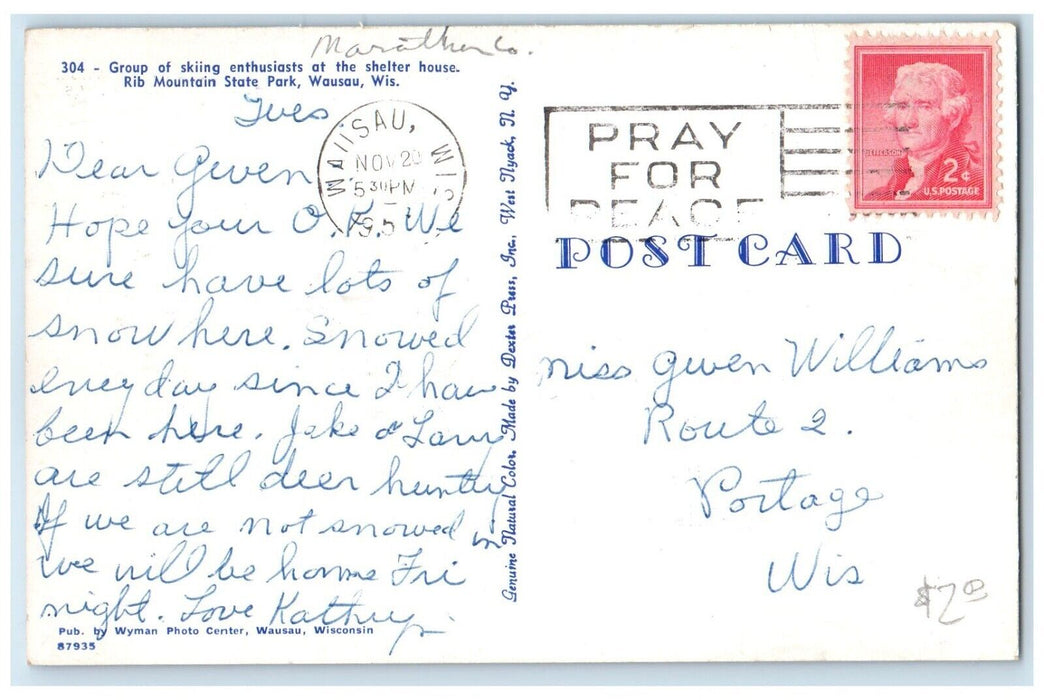 Marathon Co.
304 - Group of skiing enthusiasts at the shelter house.
Rib Mountain State Park, Wausau, Wis.
Tues
Dear Gwen
Hope your O.K. We
sure have lots of
snow here. Snowed
everyday since I have
been here. Jake &
are still deer hunting
If we are not snowed in
we will be home Fri
night. Love Kathryn
Pub. by Wyman Photo Center, Wausau, Wisconsin
87935
Genuine Natural Color. Made by Dexter Press, Inc., West Nyack, N. Y.
WAUSAU, WIS
NOV 20
530PM
195
PRAY
FOR
PEACE
JEFFERSON
2¢
U.S. POSTAGE
POST CARD
Miss Gwen Williams
Route 2.
Portage
Wis
$2.00